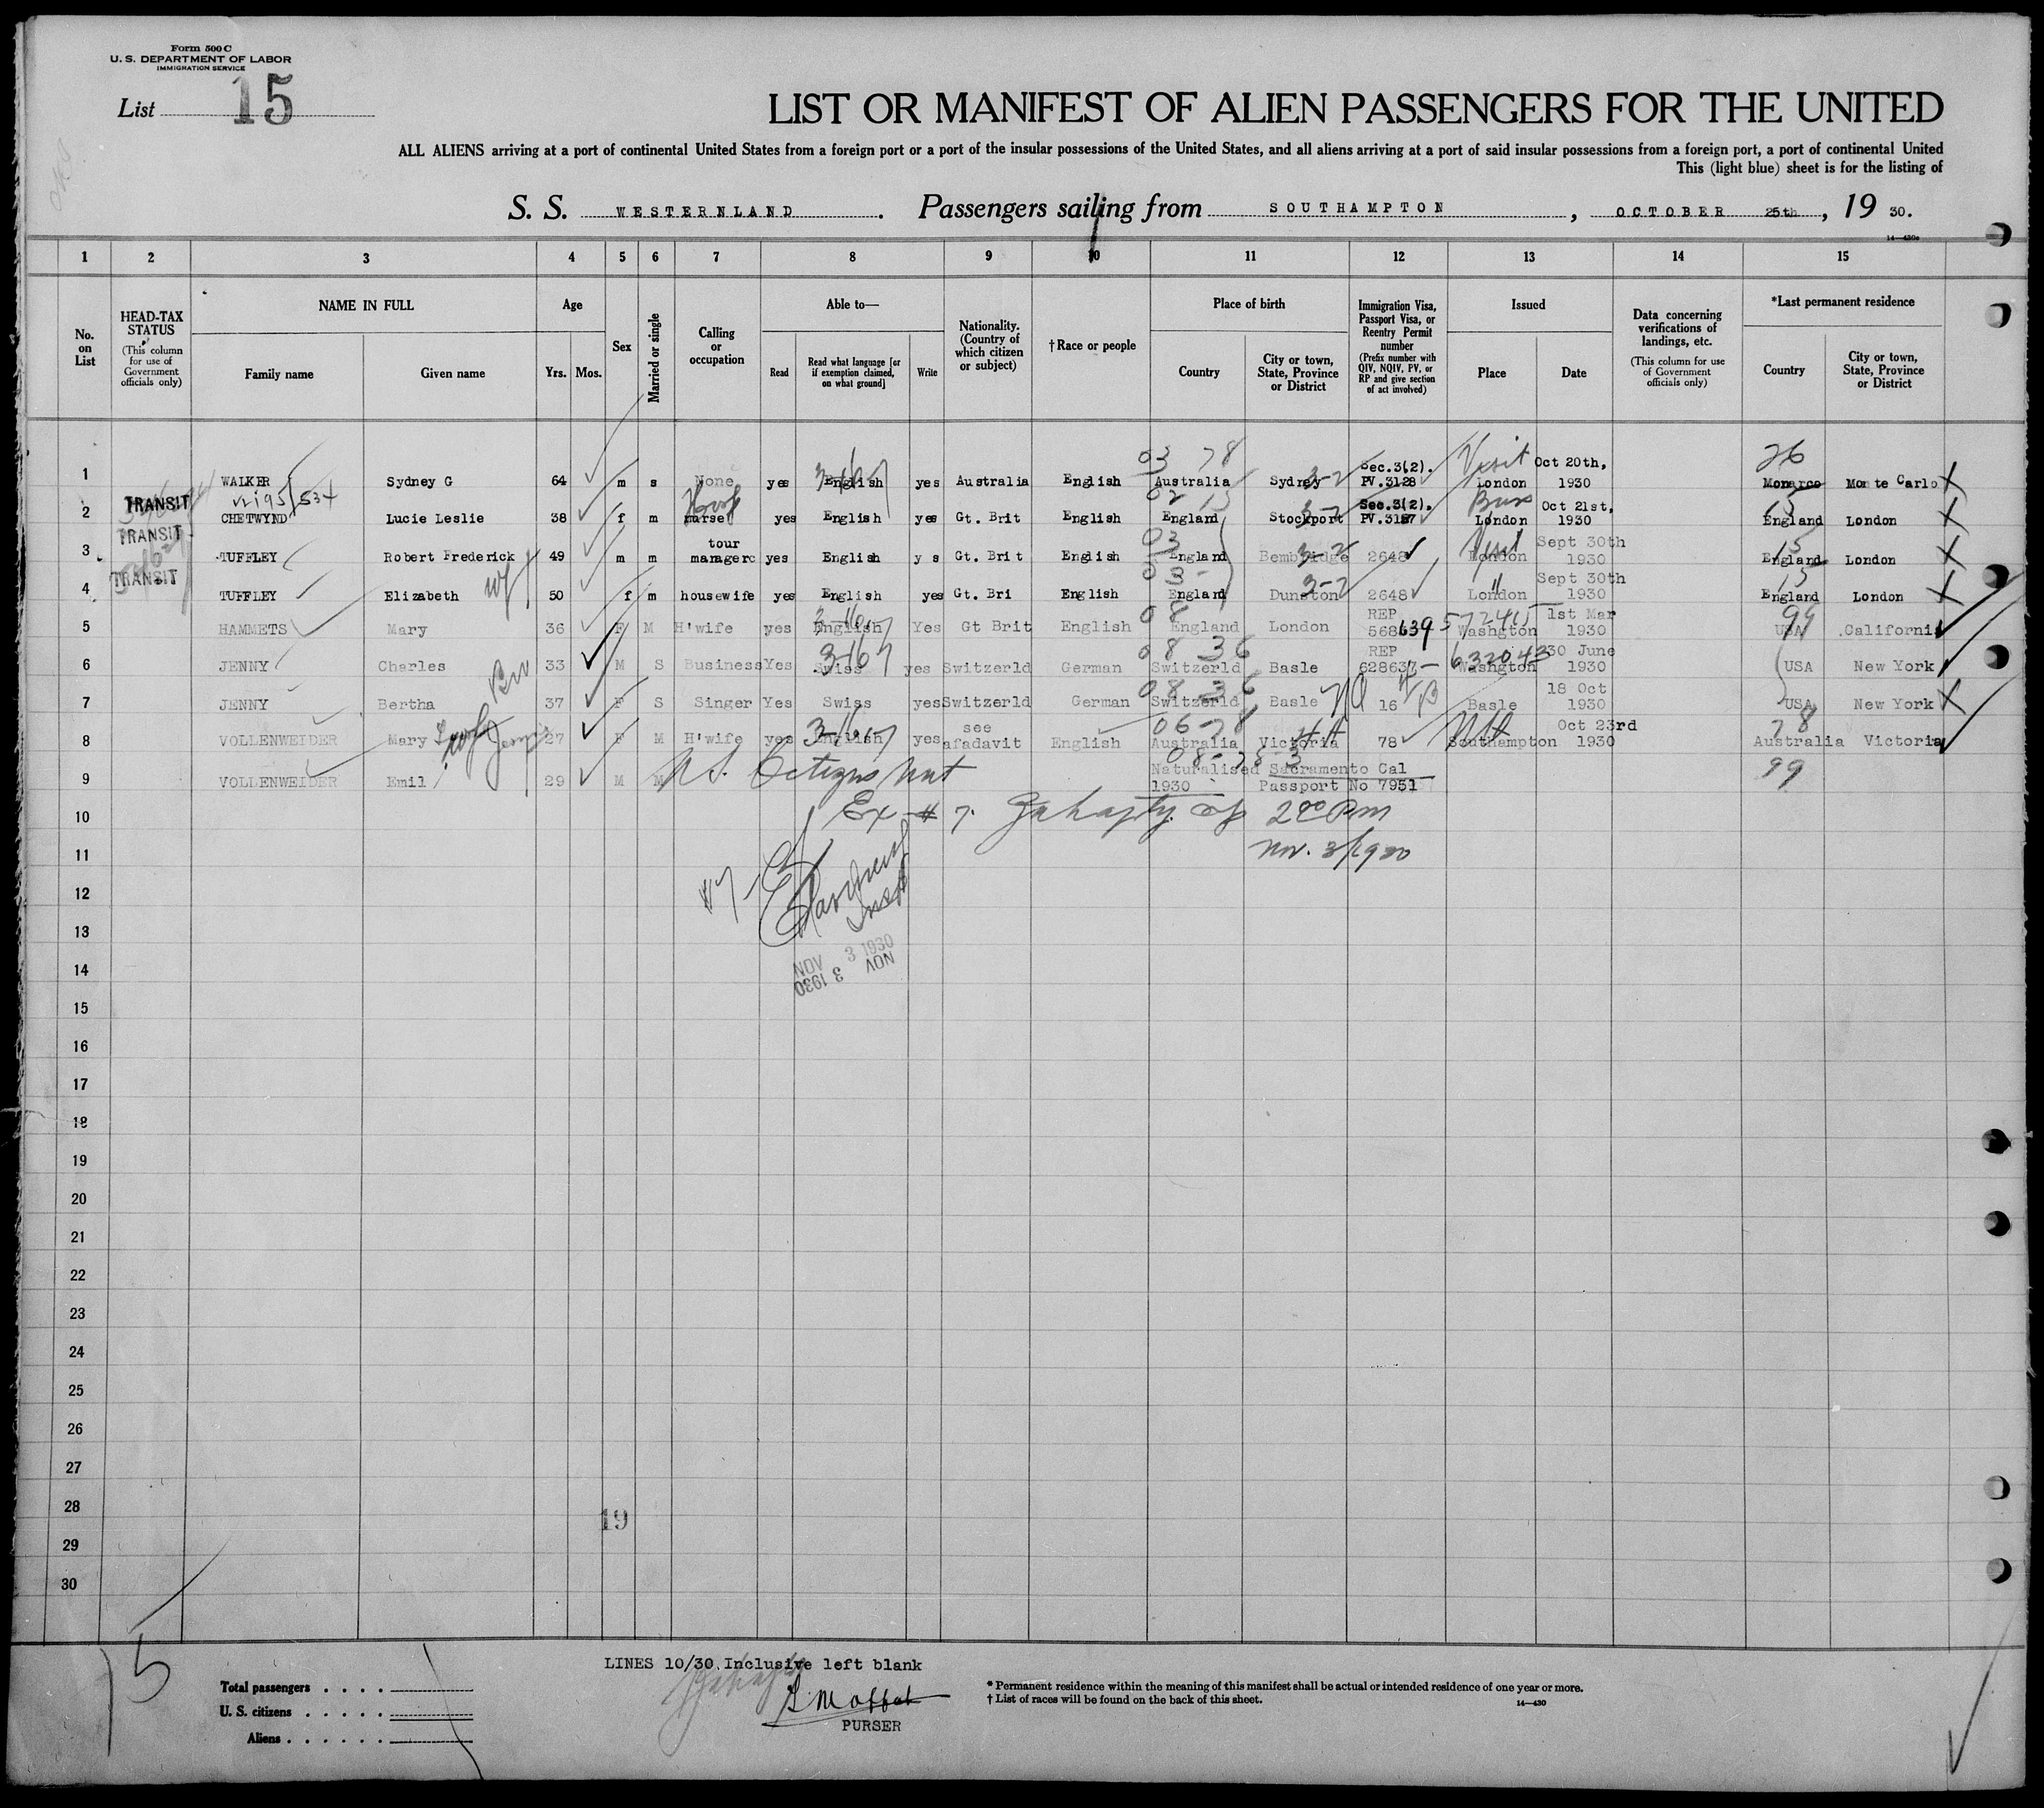 Form 500 C
U. S. DEPARTMENT OF LABOR
IMMIGRATION SERVICE
List 15
LIST OR MANIFEST OF ALIEN PASSENGERS FOR THE UNITED
ALL ALIENS arriving at a port of continental United States from a foreign port or a port of the insular possessions of the United States, and all aliens arriving at a port of said insular possessions from a foreign port, a port of continental United
This (light blue) sheet is for the listing of
S. S. WESTERNLAND. Passengers sailing from SOUTHAMPTON, OCTOBER 25th, 19 30.
1 2 3 4 5 6 7 8 9 10 11 12 13 14 15
No. on List
HEAD-TAX STATUS (This column for use of Government officials only)
NAME IN FULL
Family name
Given name
Age
Yrs. Mos.
Sex
Married or single
Calling or occupation
Able to—
Read
Read what language [or if exemption claimed, on what ground]
Write
Nationality. (Country of which citizen or subject)
†Race or people
Place of birth
Country
City or town, State, Province or District
Immigration Visa, Passport Visa, or Reentry Permit number (Prefix number with QIV, NQIV, PV, or RP and give section of act involved)
Issued
Place
Date
Data concerning verifications of landings, etc. (This column for use of Government officials only)
*Last permanent residence
Country
City or town, State, Province or District
03 78 Visit 26
1 WALKER Sydney G 64 m s None yes English yes Australia English Australia Sydney Sec.3(2). PV.3128 London Oct 20th, 1930 Monarco Monte Carlo X
2 TRANSIT CHETWYND Lucie Leslie 38 f m nurse yes English yes Gt. Brit English England Stockport Sec.3(2). London Oct 21st, 1930 England London X
3 TRANSIT TUFFLEY Robert Frederick 49 m m tour managerc yes English y s Gt. Brit English England Bembridge 2648 London Sept 30th 1930 England London X
4 TRANSIT TUFFLEY Elizabeth wf 50 f m housewife yes English yes Gt. Bri English England Dunston 2648 London Sept 30th 1930 England London X
5 HAMMETS Mary 36 F M H'wife yes English Yes Gt Brit English England London REP Washgton 1st Mar 1930 USA California
6 JENNY Charles 33 M S Business Yes Swiss yes Switzerld German Switzerld Basle REP Washgton 30 June 1930 USA New York
7 JENNY Bertha 37 F S Singer Yes Swiss yes Switzerld German Switzerld Basle 16 Basle 18 Oct 1930 USA New York X
8 VOLLENWEIDER Mary 27 F M H'wife yes English yes see afadavit English Australia Victoria 78 Southampton Oct 23rd 1930 Australia Victoria
9 VOLLENWEIDER Emil 29 M M Naturalised Sacramento Cal 1930 Passport No 7951 99
10 Ex # 7. 2 00 Pm
11 Nov. 3/1930
12
13
NOV 3 1930
14
NOV 3 1930
15
16
17
18
19
20
21
22
23
24
25
26
27
28
19
29
30
5
LINES 10/30 Inclusive left blank
Total passengers
U. S. citizens
Aliens
PURSER
* Permanent residence within the meaning of this manifest shall be actual or intended residence of one year or more.
† List of races will be found on the back of this sheet.
14—430